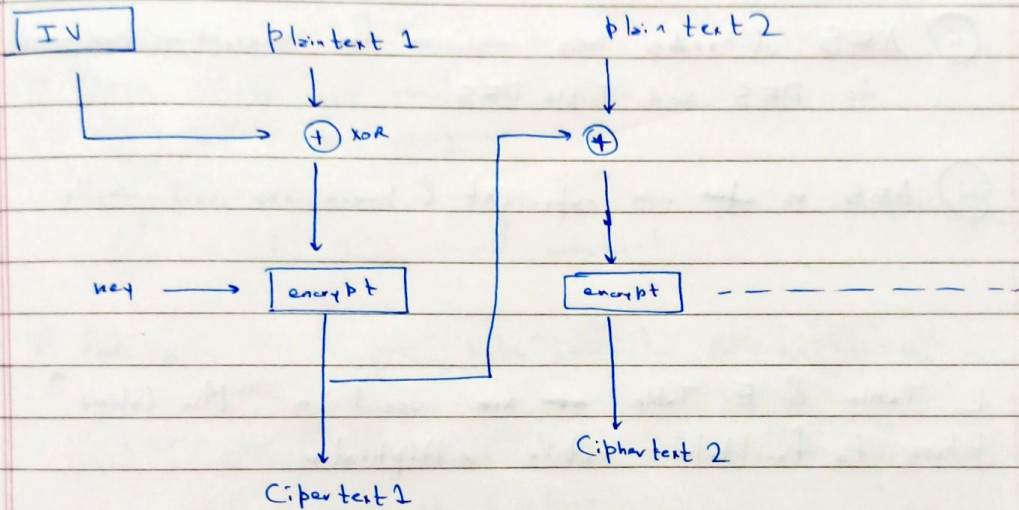 IV
Plaintext 1
plain text 2
+ XOR
+
key
encrypt
encrypt
Ciphertext 2
Cipertext 1